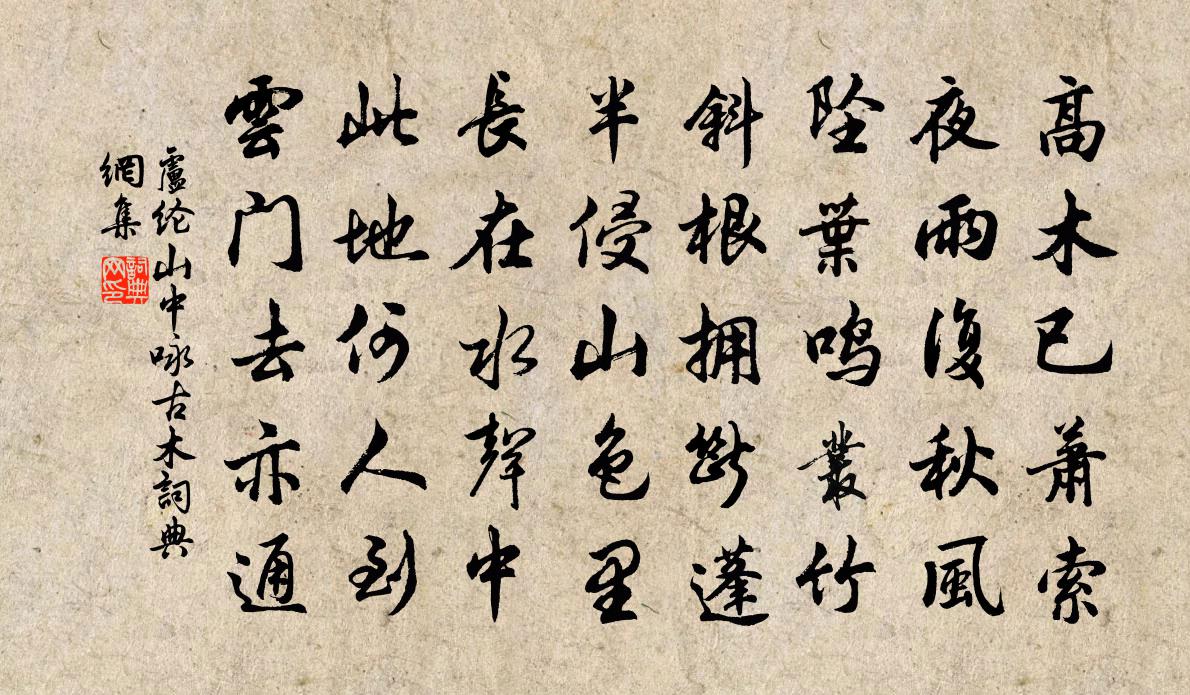 高木已萧索
夜雨復秋風
坠葉鸣叢竹
斜根拥断蓬
半侵山色里
長在水聲中
此地何人到
雲门去亦通
盧纶山中咏古木詞典
網集
詞典
网印